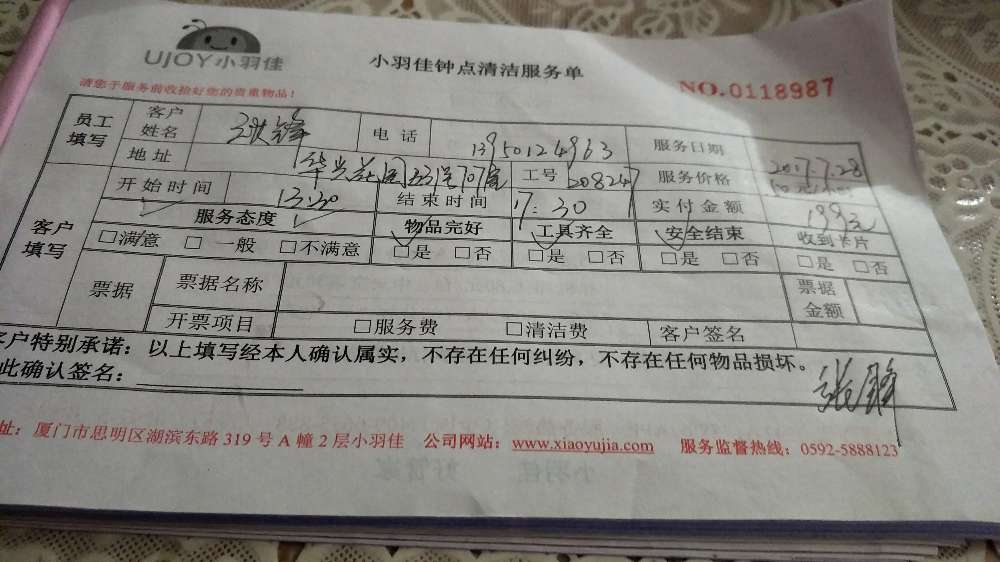 UJOY小羽佳
小羽佳钟点清洁服务单
请您于服务前收拾好您的贵重物品！
NO.0118987
员工填写 客户姓名 锋 电话 13950124963 服务日期 2017.7.28
地址 华兴花园 707室 工号 208247 服务价格
开始时间 13:30 结束时间 17:30 实付金额 199元
客户填写 服务态度 物品完好 工具齐全 安全结束 收到卡片
□满意 □一般 □不满意 □是 □否 □是 □否 □是 □否 □是 □否
票据 票据名称 票据金额
开票项目 □服务费 □清洁费 客户签名
客户特别承诺：以上填写经本人确认属实，不存在任何纠纷，不存在任何物品损坏。
此确认签名：
址：厦门市思明区湖滨东路 319 号 A 幢 2 层小羽佳 公司网站：www.xiaoyujia.com 服务监督热线：0592-5888123